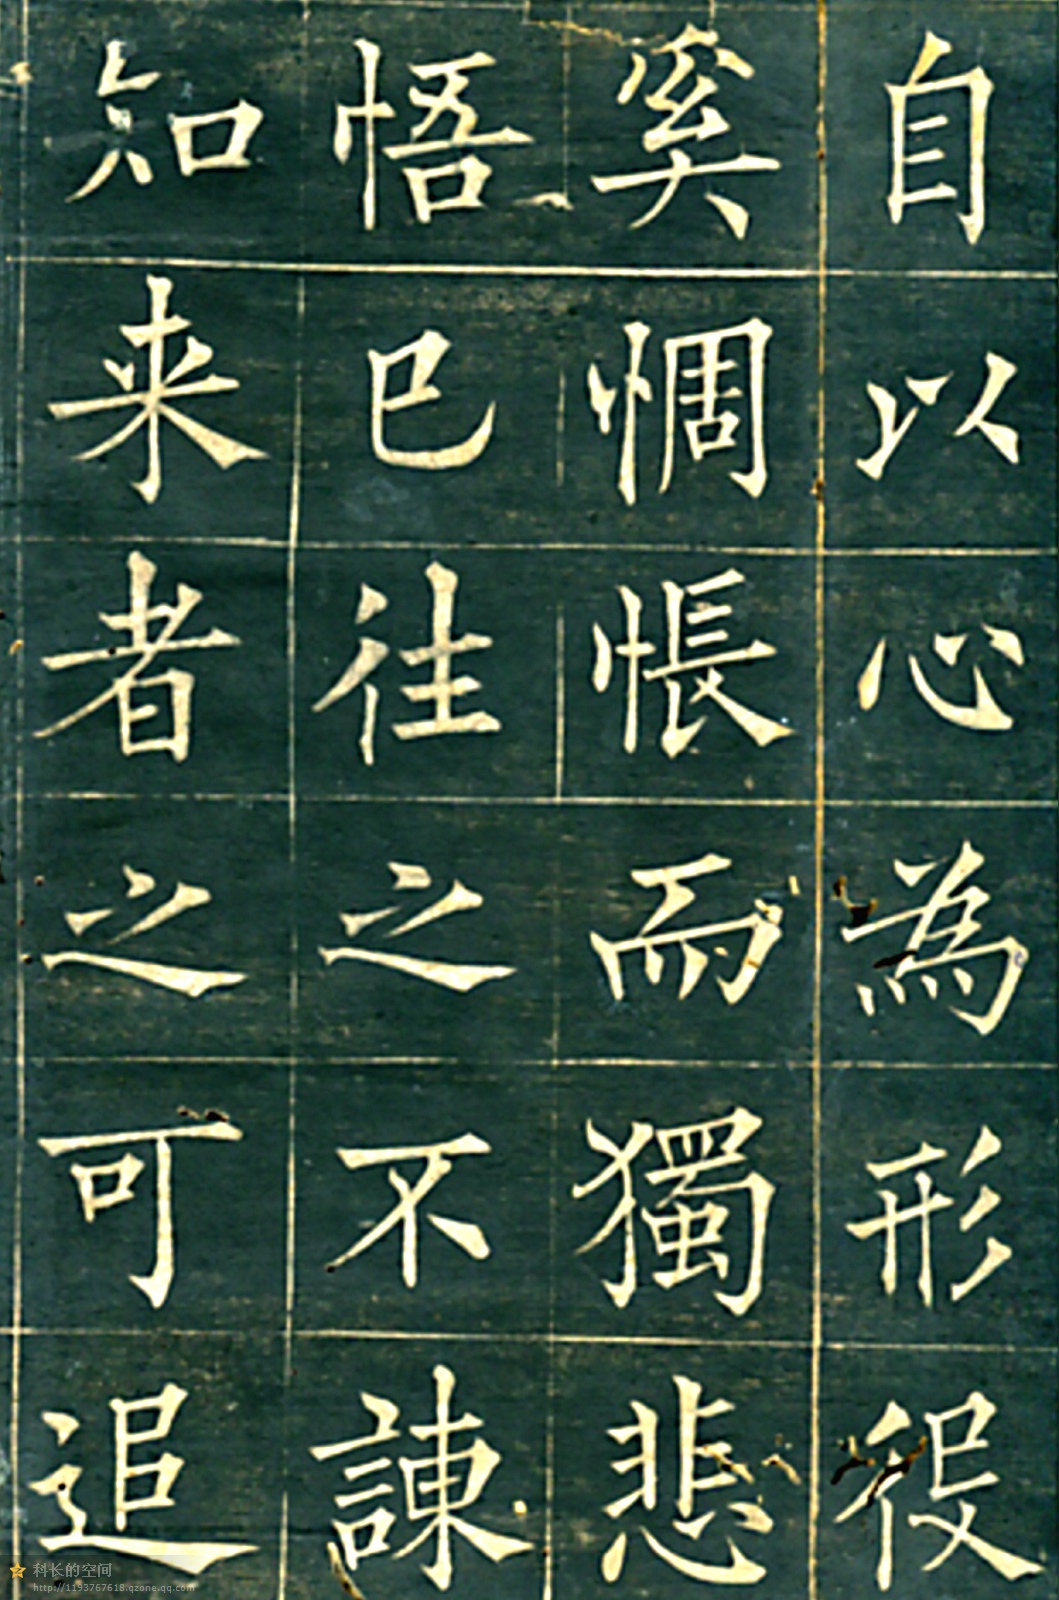 自以心為形役
奚惆悵而獨悲
悟已往之不諫
知来者之可追
科长的空间
http://1193767618.qzone.qq.com